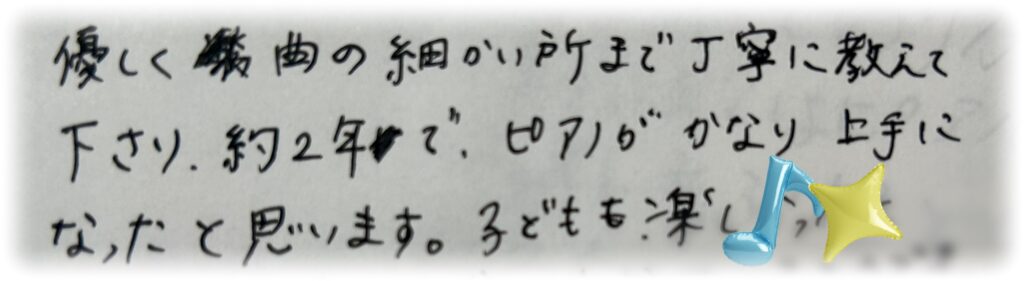 優しく曲の細かい所まで丁寧に教えて
下さり、約2年で、ピアノがかなり上手に
なったと思います。子どもも楽し